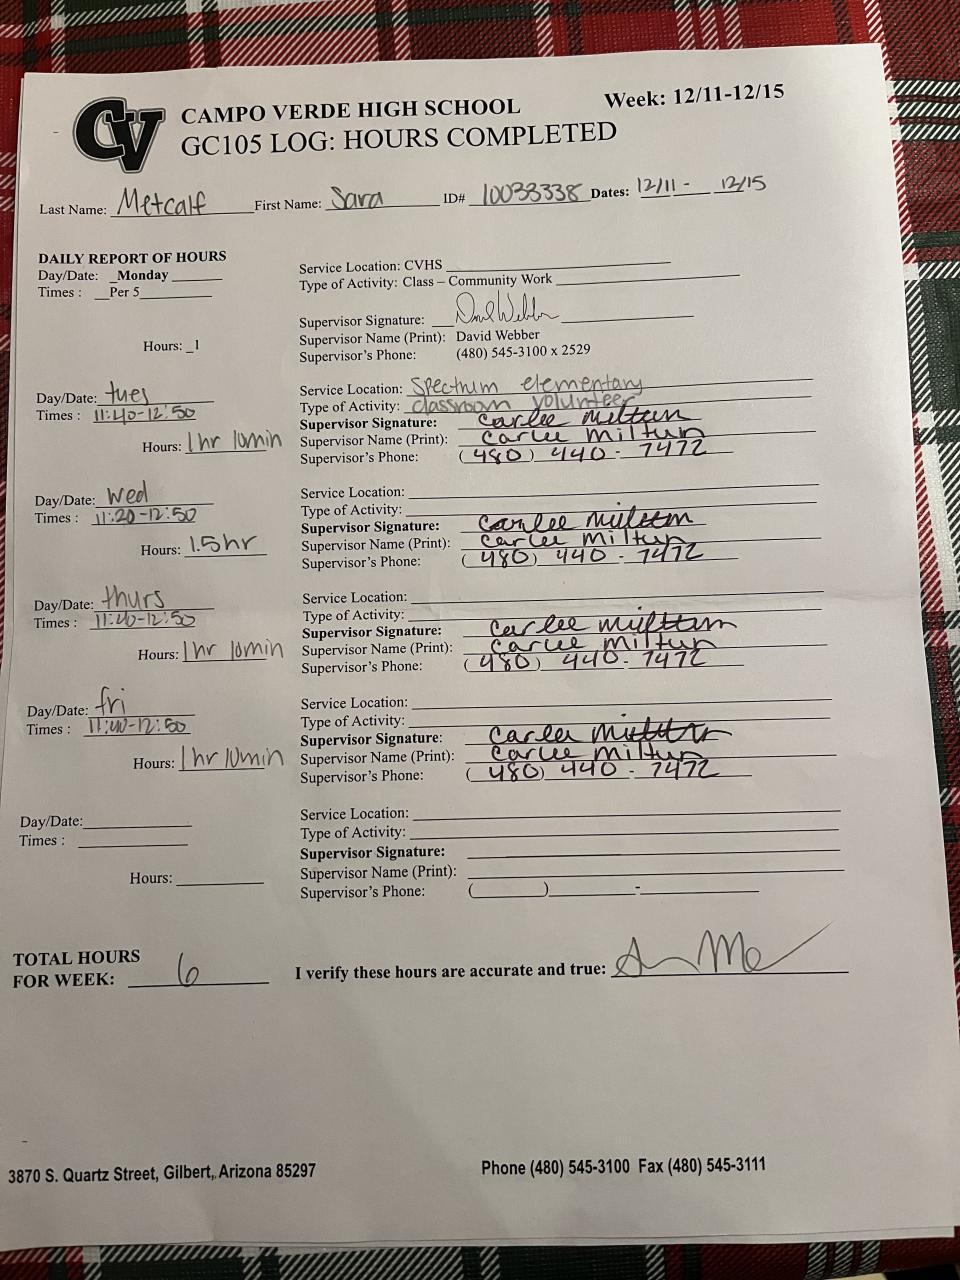 CV
CAMPO VERDE HIGH SCHOOL
Week: 12/11-12/15
GC105 LOG: HOURS COMPLETED
Last Name: Metcalf First Name: Sara ID# 10033338 Dates: 12/11 - 12/15
DAILY REPORT OF HOURS
Day/Date: Monday
Times : Per 5
Hours: 1
Service Location: CVHS
Type of Activity: Class – Community Work
Supervisor Signature: David Webber
Supervisor Name (Print): David Webber
Supervisor's Phone: (480) 545-3100 x 2529
Day/Date: tues
Times : 11:40-12:50
Hours: 1 hr 10min
Service Location: Spectrum elementary
Type of Activity: classroom volunteer
Supervisor Signature: Carlee Miltun
Supervisor Name (Print): Carlee Miltun
Supervisor's Phone: (480) 440-7472
Day/Date: wed
Times : 11:20-12:50
Hours: 1.5hr
Service Location:
Type of Activity:
Supervisor Signature: Carlee Miltun
Supervisor Name (Print): Carlee Miltun
Supervisor's Phone: (480) 440-7472
Day/Date: thurs
Times : 11:40-12:50
Hours: 1 hr 10min
Service Location:
Type of Activity:
Supervisor Signature: Carlee Miltun
Supervisor Name (Print): Carlee Miltun
Supervisor's Phone: (480) 440-7472
Day/Date: fri
Times : 11:40-12:50
Hours: 1 hr 10min
Service Location:
Type of Activity:
Supervisor Signature: Carlee Miltun
Supervisor Name (Print): Carlee Miltun
Supervisor's Phone: (480) 440-7472
Day/Date:
Times :
Hours:
Service Location:
Type of Activity:
Supervisor Signature:
Supervisor Name (Print):
Supervisor's Phone: ( ) -
TOTAL HOURS
FOR WEEK: 6
I verify these hours are accurate and true:
3870 S. Quartz Street, Gilbert, Arizona 85297
Phone (480) 545-3100 Fax (480) 545-3111